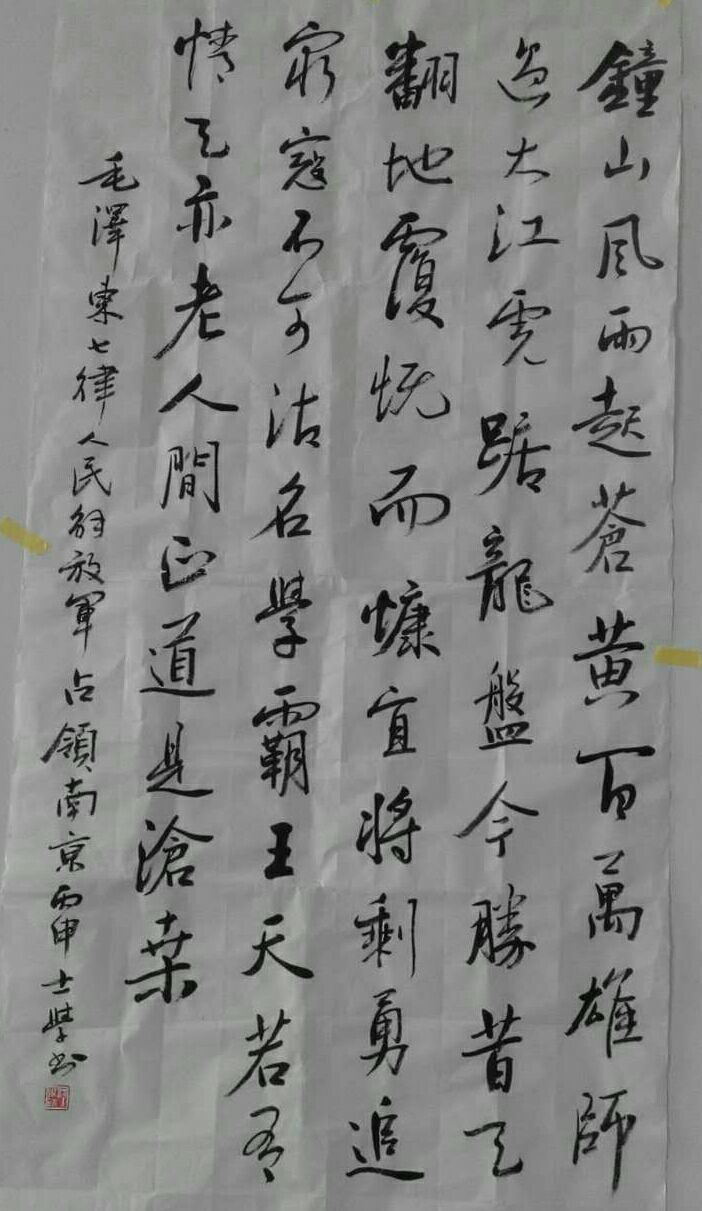 鐘山風雨起蒼黄百萬雄師
過大江虎踞龍盤今勝昔天
翻地覆慨而慷宜將剩勇追
窮寇不可沽名學霸王天若有
情天亦老人間正道是滄桑
毛澤東七律人民解放軍占領南京丙申士學书